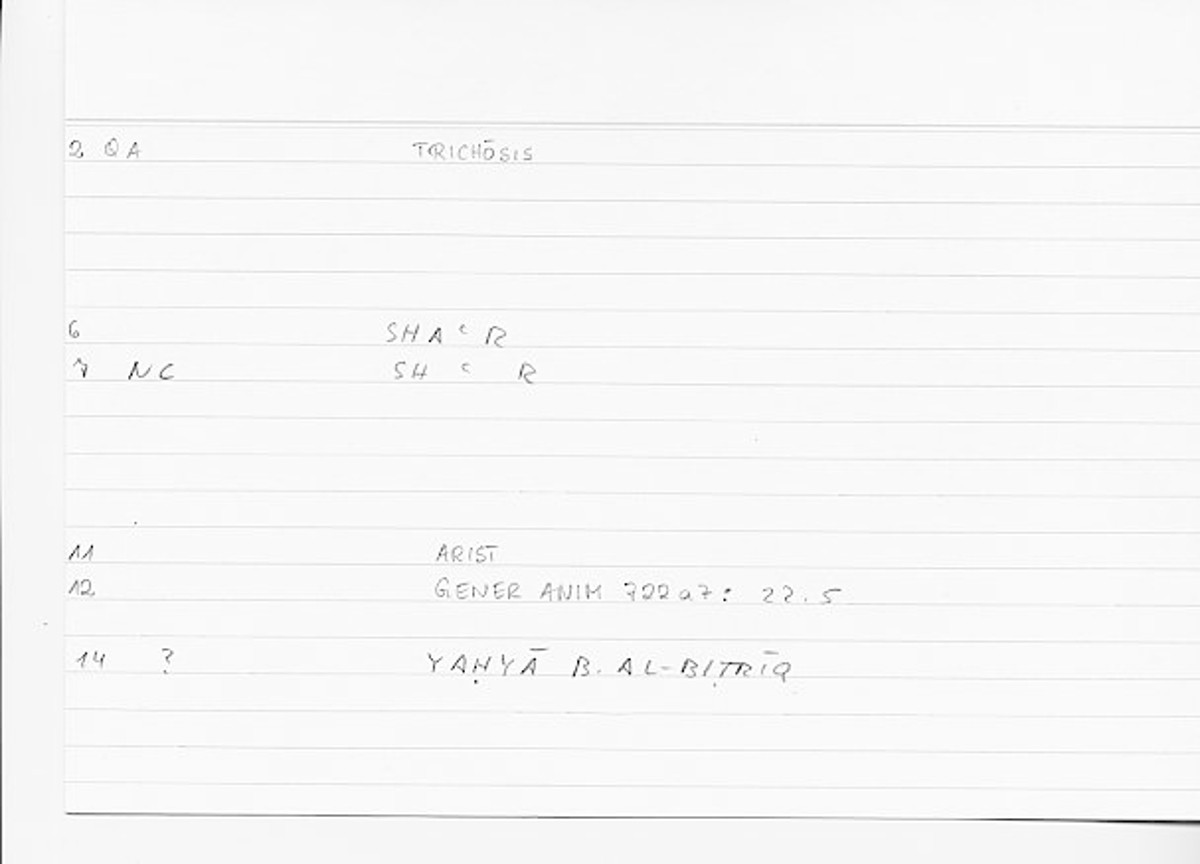 2 QA TRICHŌSIS
6 SHA ʿ R
7 NC SH ʿ R
11 ARIST
12 GENER ANIM 722a7: 22.5
14 ? YAḤYĀ B. AL-BIṬRĪQ